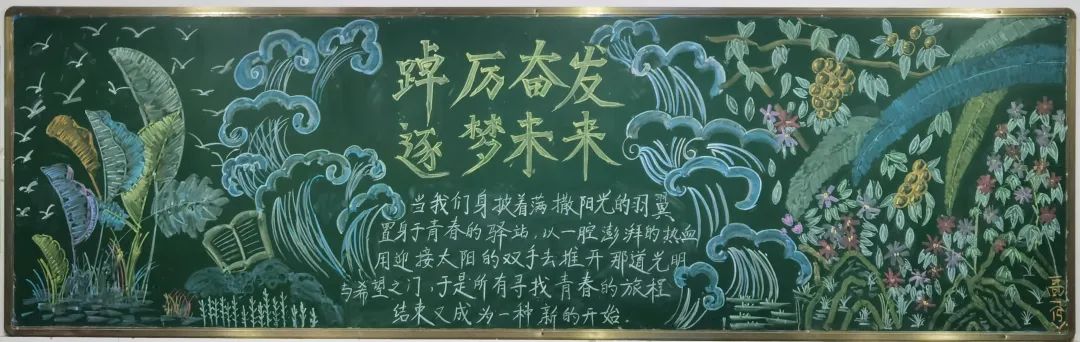 踔厉奋发
逐梦未来
当我们身披着满撒阳光的羽翼
置身于青春的驿站，以一腔澎湃的热血
用迎接太阳的双手去推开那道光明
与希望之门，于是所有寻找青春的旅程
结束又成为一种新的开始.